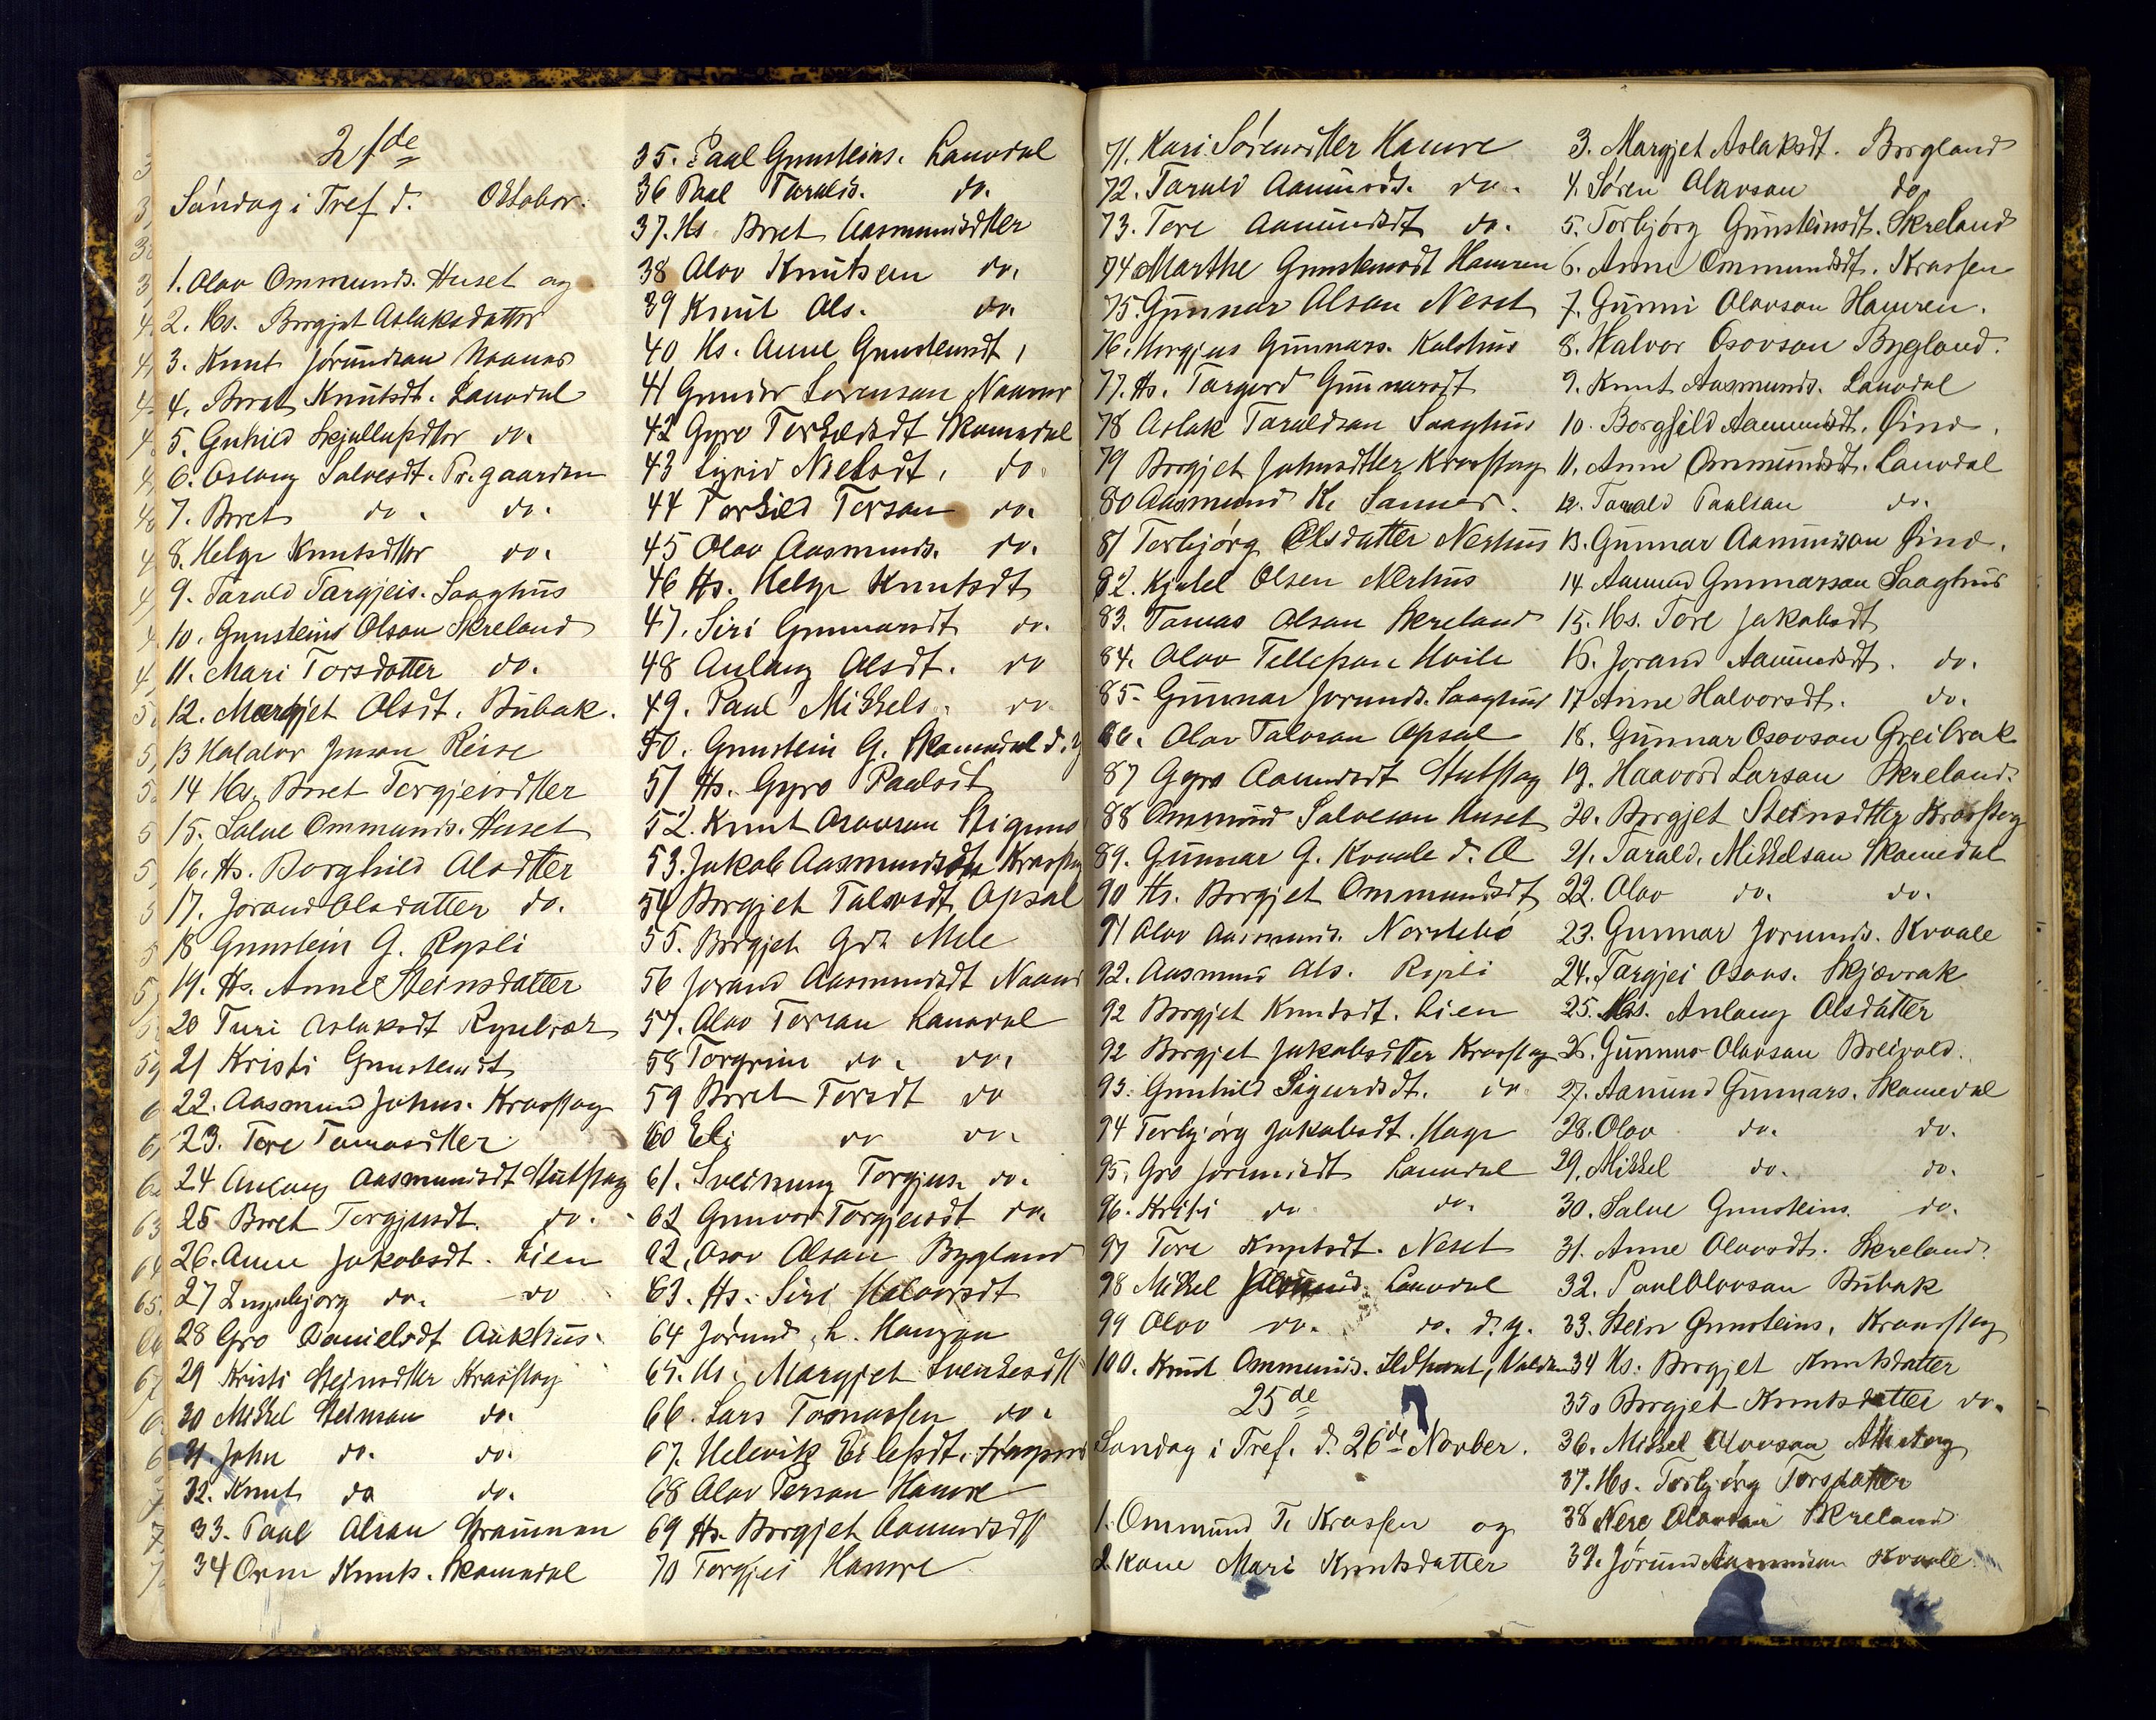 21de
Søndag i Tref. d. Oktober.
1. Olav Ommunds. Huset og
2. Hs. Borgjet Aslaksdatter
3. Knut Jørundsan Naanes
4. Boret Knutsdt. Lauvdal
5. Guhild Kjallufsdtter do.
6. Aslaug Salvesdt. Pr.gaarden
7. Boret do. do.
8. Helge Knutsdtter do.
9. Tarald Targjeis. Saaghus
10. Gunsteins Olson Skreland
11. Mari Torsdatter do.
12. Margjet Olsdt. Bubak.
13 Haldor Jonson Reise
14 Hs. Boret Torgjeisdtter
15. Salve Ommunds. Huset
16. Hs. Borghild Alsdtter
17. Jorand Olsdatter do.
18 Gunstein G. Rysli
19. Hs. Anne Steinsdatter
20 Turi Aslaksdt
21 Kristi Gunsteinsdt
22. Aasmund Johns. Krosstøg
23. Tore Tomasdtter
24 Anlaug Aasmundsdt Stutstøg
25 Boret Torgjusdt. do.
26. Anne Jakobsdt. Lien
27 Ingebjørg do. do
28 Gro Danielsdt Aakhus.
29 Kristi Steinsdtter Krosstøg
30 Mikkel Steinsan do.
31 John do. do.
32. Knut do do.
33. Paal Olsan Straumen
34 Orm Knuts. Skomedal
35. Paal Gunsteins. Lauvdal
36 Paal Taralds. do.
37. Hs. Boret Aasmundsdtter
38 Olav Knutsen do.
39 Knut Ols. do.
40 Hs. Anne Gunsteinsdt,
41 Gunder Sørensan Naanes
42 Gyro Torkildsdt Skomedal
43 Sigrid Nielsdt, do.
44 Torkild Torsan do.
45 Olav Aasmunds. do.
46 Hs. Helge Knutsdt
47. Siri Gunnarsdt do.
48 Aulaug Olsdt. do
49. Paul Mikkels. do
50. Gunstein G. Skomedal d. y
51 Hs. Gyro Paalsdt
52. Knut Osovsan
53. Jakob Aasmunds Krosstøg
54 Borgjet Talovsdt Opsal
55. Borgjet Gdr. Mele
56 Jorand Aasmundsdt Naanes
57. Olav Torsan Lauvdal
58 Torgrim do. do.
59 Boret Torsdt do
60 Eli do do.
61. Sveinung Torgjus. do.
62 Gunvor Torgjeisdt do.
62. Osov Olsan Bygland
63. Hs. Siri Halvorsdt
64 Jørund L. Haugan
65. Hs. Margjet
66. Lars Tomassen do.
67. Helevik
68 Olav Person Hamre
69 Hs. Borgjet Aamundsdt
70 Torgjei Hamre
71. Kari Sørensdtter Hamre
72. Tarald Aamunds. do.
73. Tore Aamundsdt do.
74 Marthe Gunsteinsdt Hamren
75. Gunnar Olsan Neset
76. Torgjus Gunnars. Kaldhus
77. Hs. Targerd Gunnarsdt
78 Aslak Taraldsan Saaghus
79 Borgjet Johnsdtter Krosstøg
80 Aasmund K. Sannes.
81 Torbjørg Olsdatter Nerhus
82. Kjetel Olsen Nerhus
83. Tomas Olsan Skreland
84. Olov Tellefsan Hvile
85. Gunnar Jorunds. Saaghus
86. Olav Talvsan Opsal
87 Gyro Aamundsdt Stutstøg
88 Ommund Salvesan Huset
89. Gunnar G. Kvaale d. Æ
90 Hs. Borgjet Ommundsdt
91 Olov Aasmunds. Nordebø
92. Aasmund Als. Rysli
92 Borgjet Knutsdt. Lien
92 Borgjet Jakobsdtter Krosstøg
93. Gunhild Sigurdsdt. do
94 Torbjørg Jakobsdt. Hage
95. Gro Jorundsdt Lauvdal
96. Kristi do do.
97 Tore Knutsdt. Neset
98 Mikkel Lauvdal
99 Olov do. do. d. y.
100. Knut Ommunds.
25de
Søndag i Tref. d. 26de Novber.
1. Ommund T. Krossen og
2. Kone Mari Knutsdatter
3. Margjet Aslaksdt. Borgland
4. Søren Olavson do.
5. Torbjørg Gunsteinsdt. Skreland
6. Anne Ommundsdt. Krossen
7. Gunni Olovson Hamren.
8. Halvor Osovson Bygland.
9. Knut Aasmunds. Lauvdal
10. Borghild Aamundsdt.
11. Anne Ommundsdt. Lauvdal
12. Tarald Paalsan do.
13. Gunnar Aamundsan
14. Aamund Gunnarsan Saaghus
15. Hs. Tore Jakobsdt
16. Jorand Aamundsdt. do.
17 Anne Halvorsdt. do.
18. Gunnar Osovson Greibrok
19. Haavord Larsan Skreland.
20. Borgjet Steinsdtter Krosstøg
21. Tarald Mikkelsan Skomedal
22. Olov do. do.
23. Gunnar Jorunds. Kvaale
24. Targjei Osovs. Skjævrak
25. Hs. Anlaug Olsdatter
26. Gunnar Olavsan Breivold.
27. Aamund Gunnars. Skomedal
28. Olov do. do.
29. Mikkel do. do.
30. Salve Gunsteins. do.
31. Anne Olovsdt. Skreland.
32. Paul Olovsan Bubak
33. Stein Gunsteins, Krosstøg
34 Hs. Borgjet Knutsdatter
35. Borgjet Knutsdatter do.
36. Mikkel Olovsan
37. Hs. Torbjørg Torsdatter
38 Nere Olavsan Skreland
39. Jørund Aamundsan Kvaale